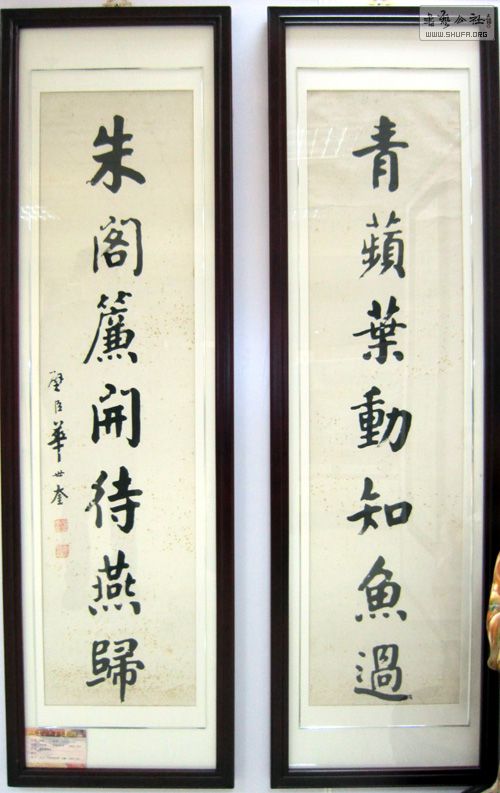 青蘋葉動知魚過
朱閣簾開待燕歸
璧臣華世奎
WWW.SHUFA.ORG